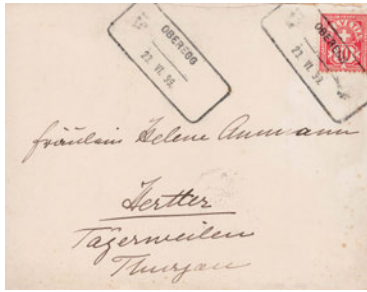 OBEREGG
23. VI. 99.
OBEREGG
23. VI. 99.
HELVETIA
10
Fräulein Helene Ammann
Hertler
Tägerweilen
Thurgau